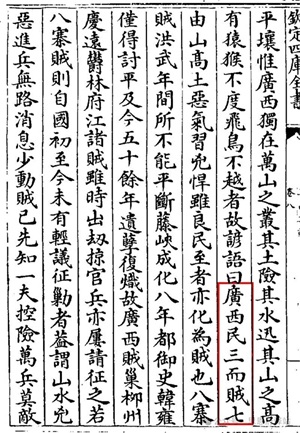 欽定四庫全書
卷八
平壤惟廣西獨在萬山之叢其土險其水迅其山之高
有猿猴不度飛鳥不越者故諺語曰廣西民三而賊七
由山高土惡氣習兇悍雖良民至者亦化為賊也八寨
賊洪武年間所不能平斷藤峽成化八年都御史韓雍
僅得討平及今五十餘年遺孽復熾故廣西賊巢柳州
慶遠欎林府江諸賊雖時出刼掠官兵亦屢請征之若
八寨賊則自國初至今未有輕議征勦者葢謂山水兇
惡進兵無路消息少動賊已先知一夫控險萬兵莫敵